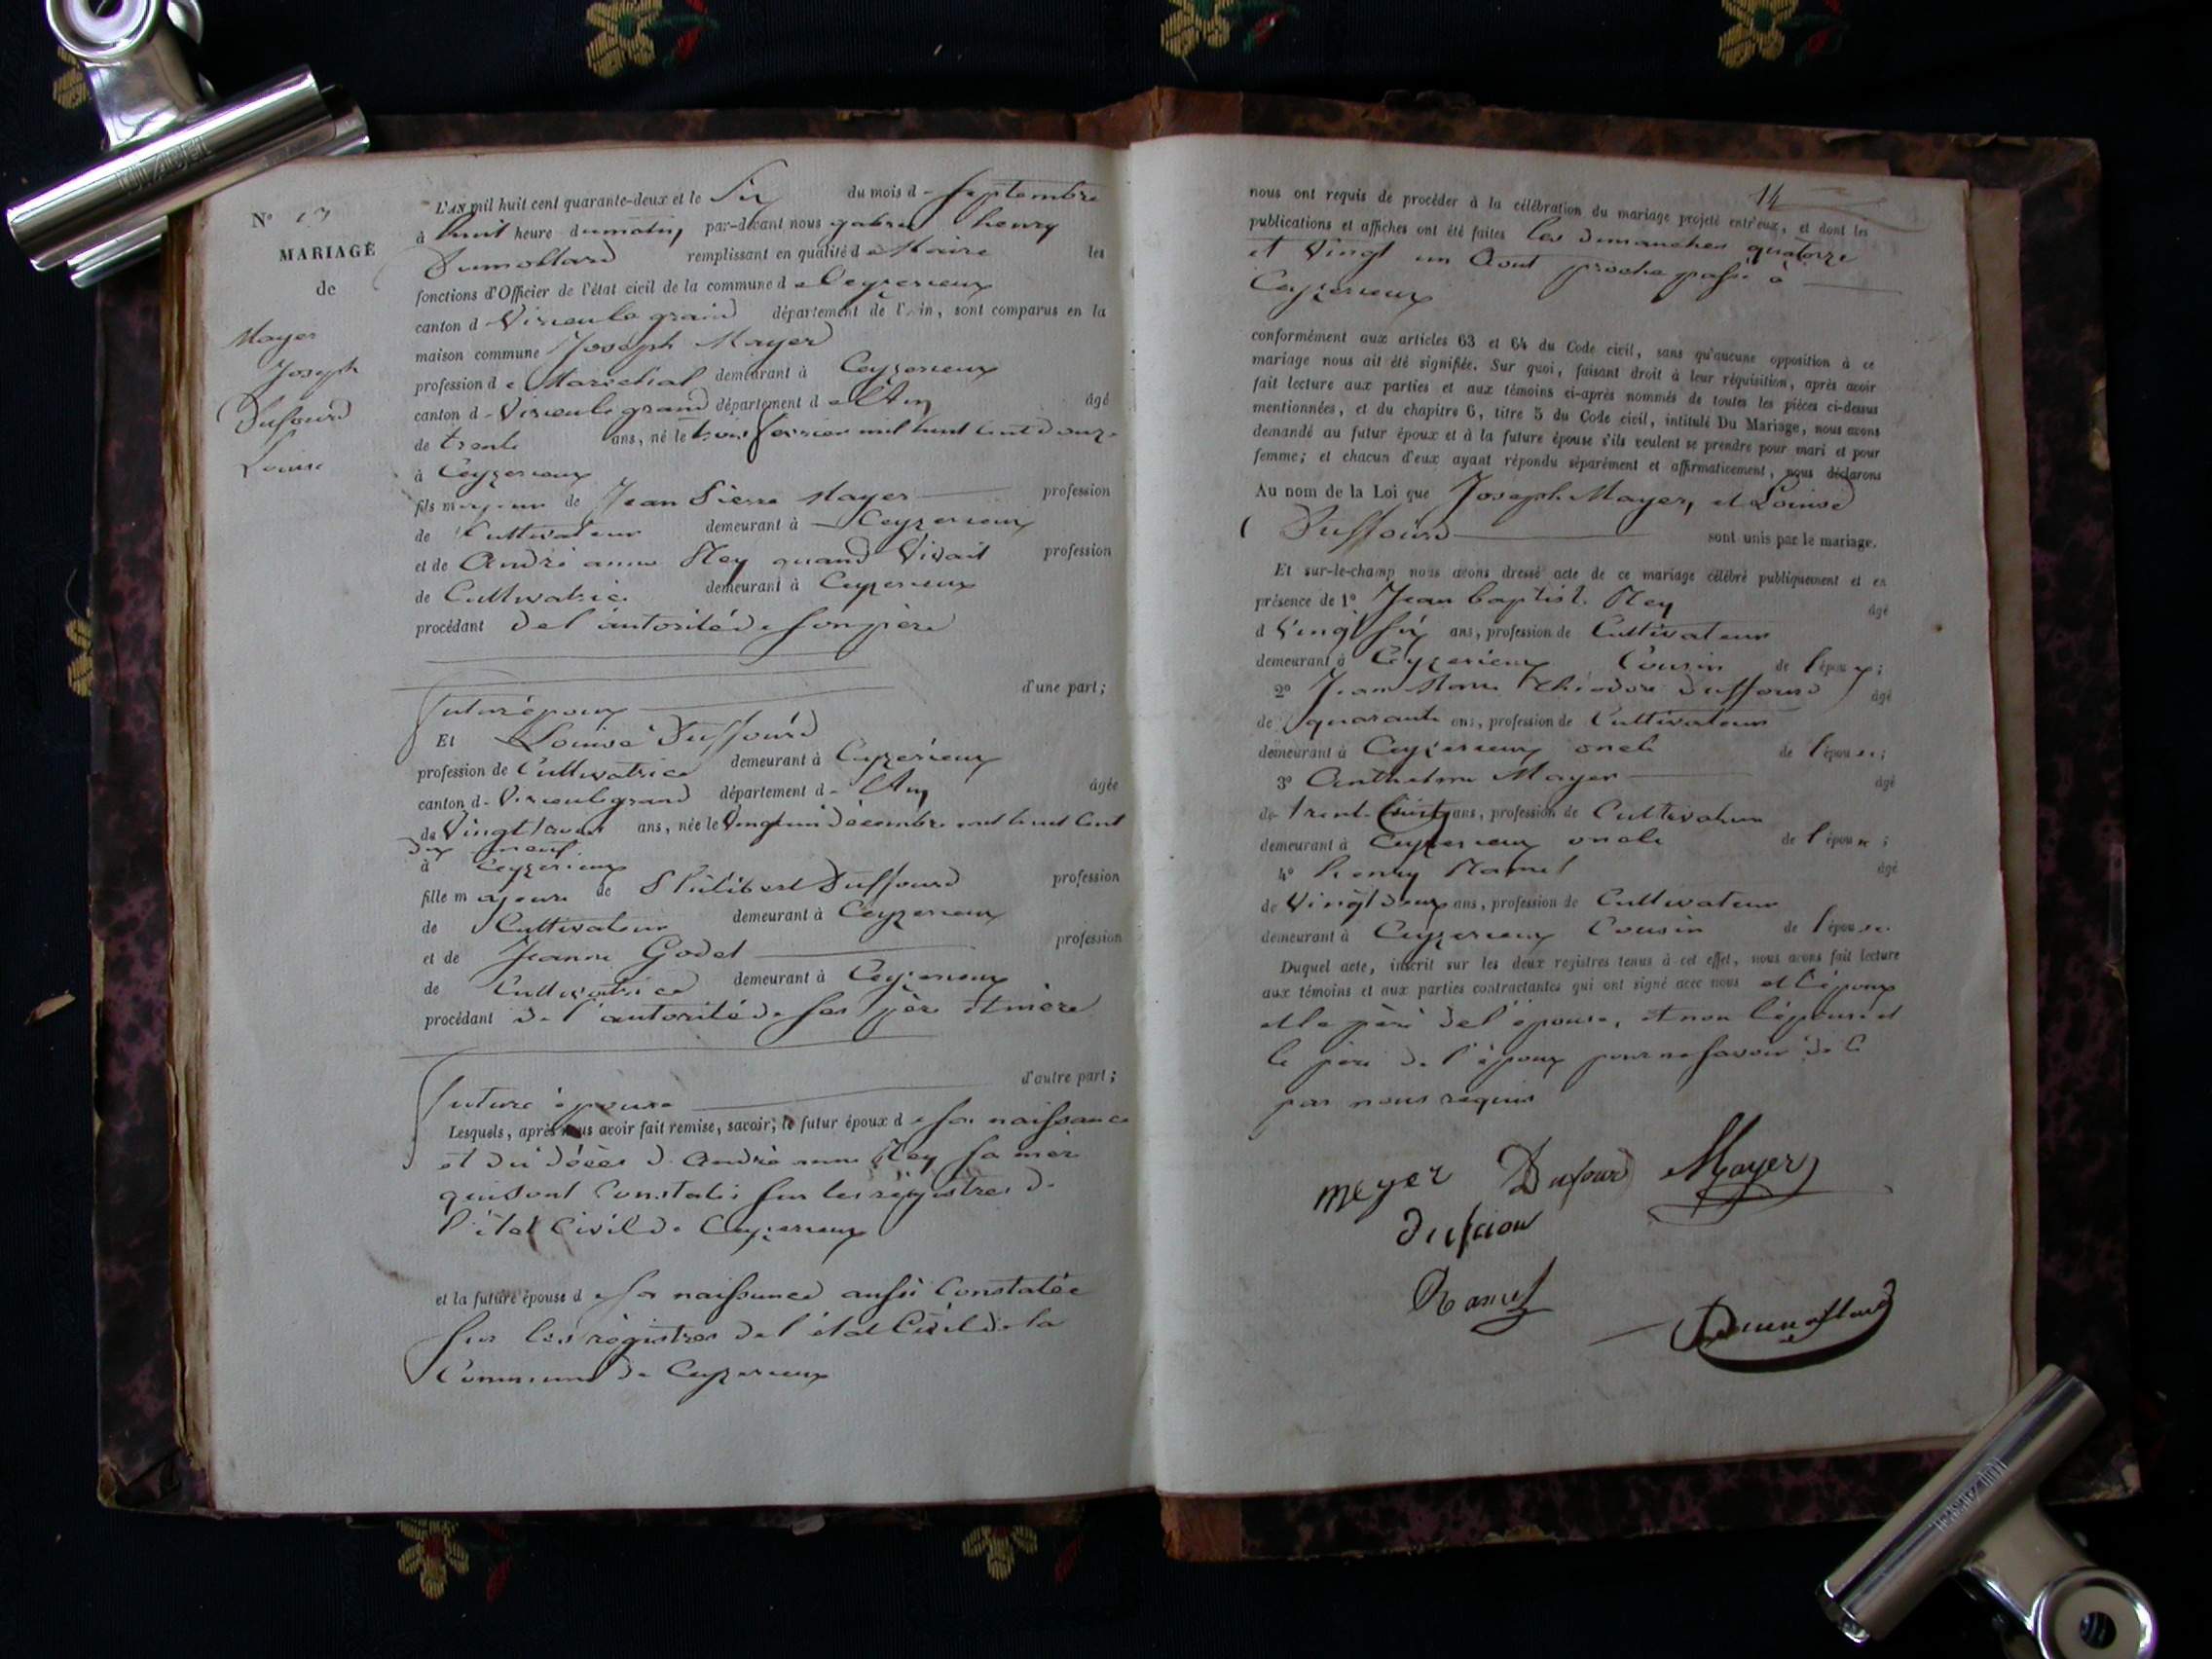 N° 13
MARIAGE
de
Mayer
Joseph
Dufourd
Louise
L'AN mil huit cent quarante-deux et le Six du mois d - septembre
à huit heure du matin, par-devant nous gabriel henry
Dumollard remplissant en qualité de Maire les
fonctions d'Officier de l'état civil de la commune de Ceyzerieux
canton d Virieu le grand département de l'Ain, sont comparus en la
maison commune Joseph Mayer
profession de Maréchal demeurant à Ceyzerieux
canton d - Virieu le grand département de l'Ain âgé
de trente ans, né le trois fevrier mil huit cent douze
à Ceyzerieux
fils majeur de Jean Pierre Mayer profession
de Cultivateur demeurant à Ceyzerieux
et de André anne Rey quand Vivait profession
de Cultivatrice demeurant à Ceyzerieux
procédant de l'autorité de son père
d'une part;
futur époux
Et Louise Duffourd
profession de Cultivatrice demeurant à Ceyzerieux
canton d - Virieu le grand département d - l'Ain âgée
de Vingt ans, née le Vingt un décembre mil huit Cent
dix neuf
à Ceyzerieux
fille majeure de Philibert Duffourd profession
de Cultivateur demeurant à Ceyzerieux
et de Jeanne Godet profession
de Cultivatrice demeurant à Ceyzerieux
procédant de l'autorité de ses père et mère
d'autre part;
future épouse
Lesquels, après nous avoir fait remise, savoir; le futur époux de sa naissance
et du décès d. André anne Rey sa mère
qui sont Constatés sur les régistres de
l'état Civil de Ceyzerieux
et la future épouse de sa naissance aussi Constatée
sur les régistres de l'état Civil de la
Commune de Ceyzerieux
14
nous ont requis de procéder à la célébration du mariage projeté entr'eux, et dont les
publications et affiches ont été faites les dimanches quatorze
et Vingt un Aout proche passé à
Ceyzerieux
conformément aux articles 63 et 64 du Code civil, sans qu'aucune opposition à ce
mariage nous ait été signifiée. Sur quoi, faisant droit à leur réquisition, après avoir
fait lecture aux parties et aux témoins ci-après nommés de toutes les pièces ci-dessus
mentionnées, et du chapitre 6, titre 5 du Code civil, intitulé Du Mariage, nous avons
demandé au futur époux et à la future épouse s'ils veulent se prendre pour mari et pour
femme; et chacun d'eux ayant répondu séparément et affirmativement, nous déclarons
Au nom de la Loi que Joseph Mayer, et Louise
Duffourd sont unis par le mariage.
Et sur-le-champ nous avons dressé acte de ce mariage célébré publiquement et en
présence de 1° Jean baptist. Rey âgé
d Vingt six ans, profession de Cultivateur
demeurant à Ceyzerieux Cousin de l'époux;
2° Jean Marie Théodore Duffourd âgé
de quarante ans, profession de Cultivateur
demeurant à Ceyzerieux oncle de l'épouse;
3° Anthelme Mayer âgé
de trent. ans, profession de Cultivateur
demeurant à Ceyzerieux oncle de l'époux;
4° henry Ramel âgé
de Vingt deux ans, profession de Cultivateur
demeurant à Ceyzerieux Cousin de l'épouse.
Duquel acte, inscrit sur les deux registres tenus à cet effet, nous avons fait lecture
aux témoins et aux parties contractantes qui ont signé avec nous et l'époux
et le père de l'épouse, et non l'épouse et
le père de l'époux pour ne savoir de ce
par nous requis
meyer Dufourd Mayer
Ramel
Dumollard